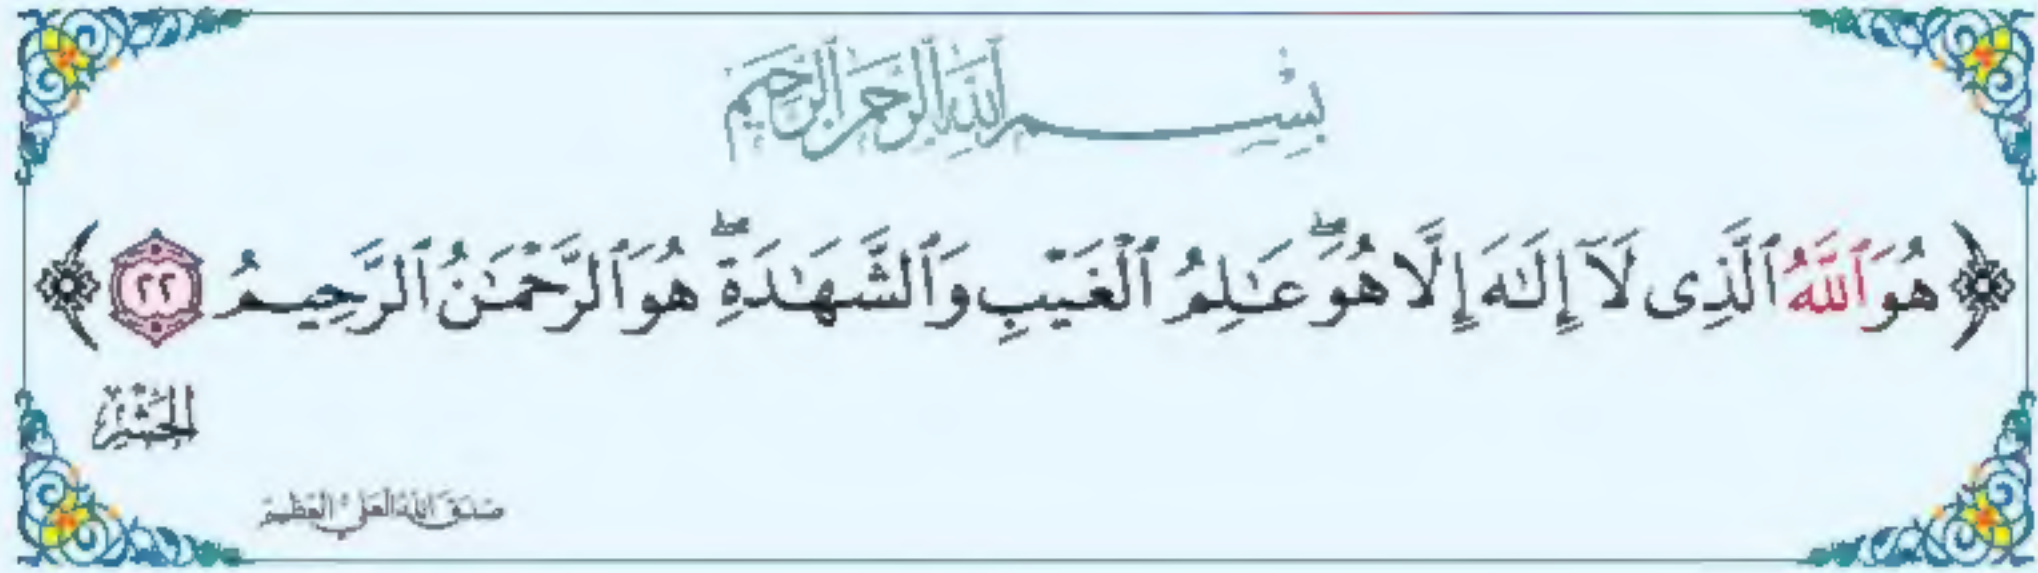 بِسْمِ ٱللَّهِ ٱلرَّحْمَٰنِ ٱلرَّحِيمِ
﴿هُوَ ٱللَّهُ ٱلَّذِى لَآ إِلَٰهَ إِلَّا هُوَۖ عَٰلِمُ ٱلْغَيْبِ وَٱلشَّهَٰدَةِۖ هُوَ ٱلرَّحْمَٰنُ ٱلرَّحِيمُ ٢٢﴾
الحَشْر
صَدَقَ اللهُ العَلِيُّ العَظِيمُ